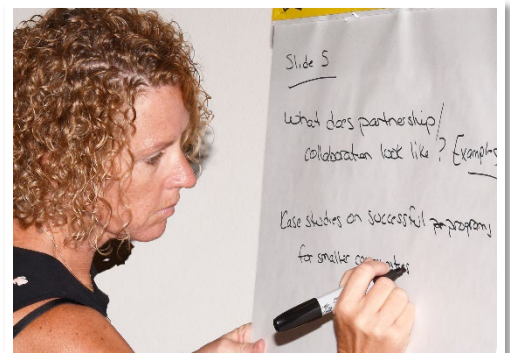 Slide 5
What does partnership/
collaboration look like? Examples
Case studies on successful programs
for smaller communities